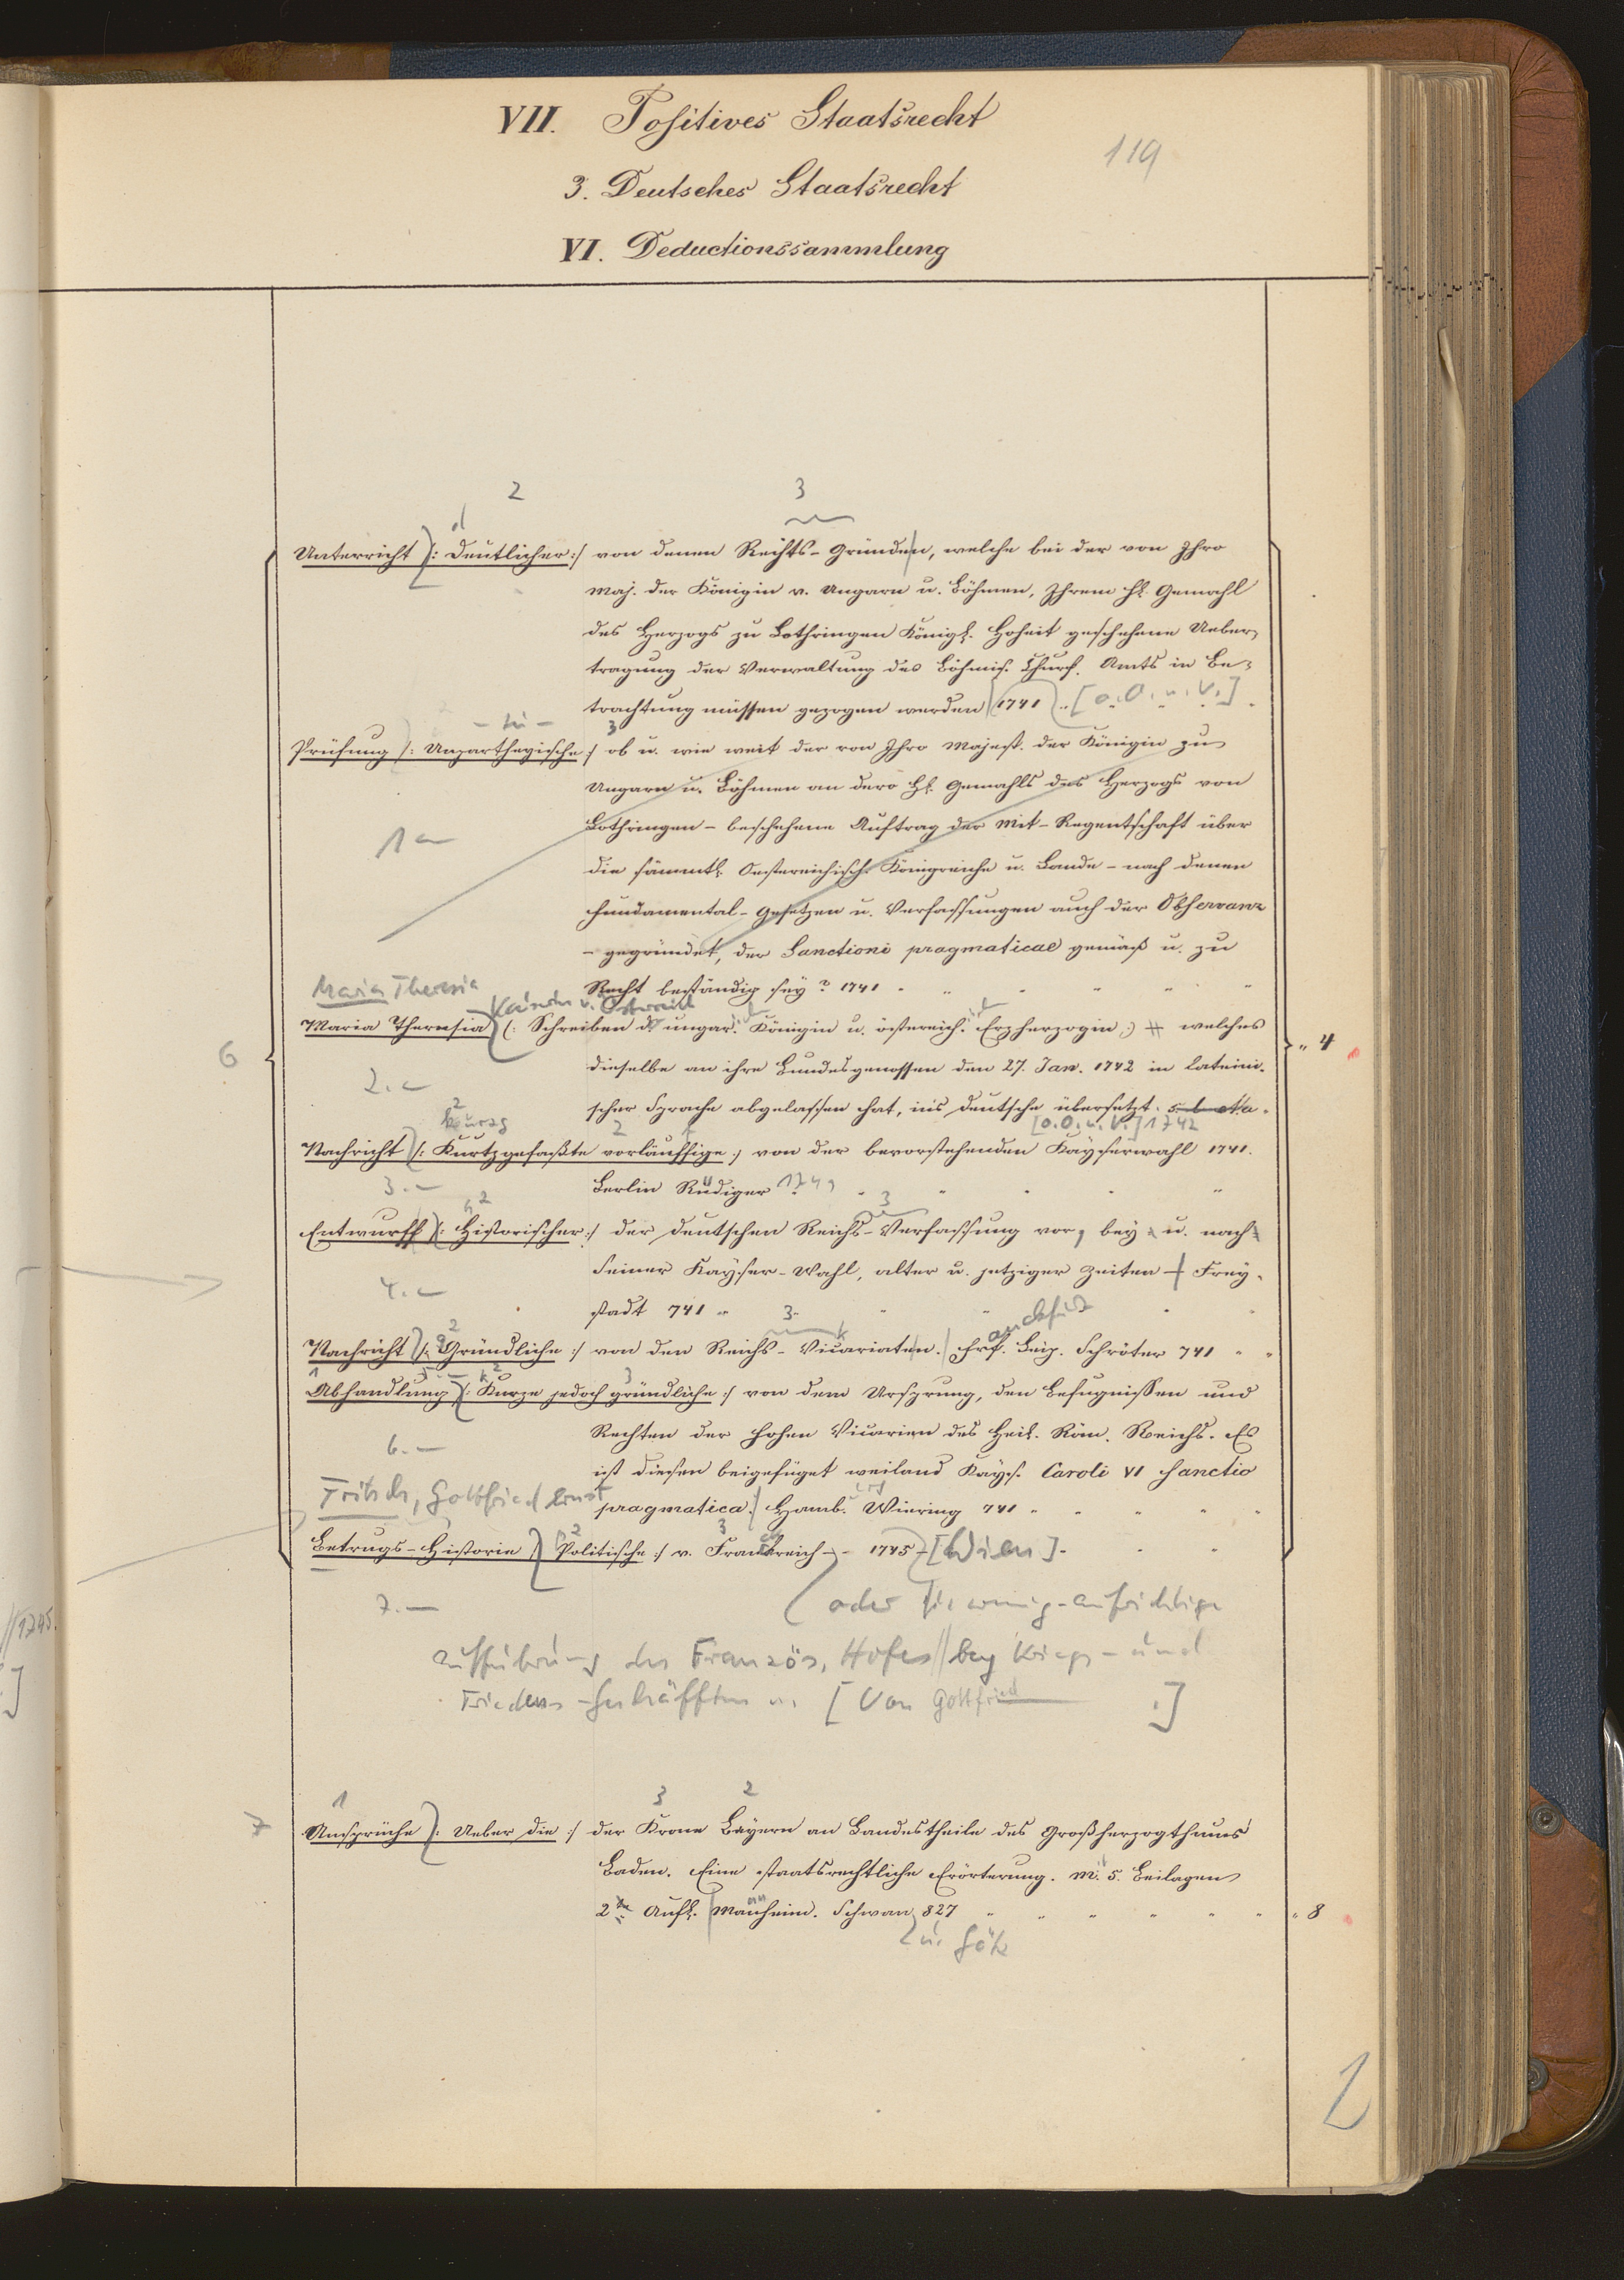 VII. Positives Staatsrecht
119
3. Deutsches Staatsrecht
VI. Deductionssammlung
2 3
Unterricht /: Deutlicher :/ von denen Rechts-Gründen, welche bei der von Ihro
Maj. der Königin v. Ungarn u. Böhmen, Ihrem H. Gemahl
des Herzogs zu Lothringen Königl. Hoheit geschehene Ueber-
tragung der Verwaltung des Böhmis. Churf. Amts in Be-
trachtung müssen gezogen werden 1741 [o. O. u. V.]
Prüfung /: Unpartheyische :/ ob u. wie weit der von Ihro Majest. der Königin zu
Ungarn u. Böhmen an dero H. Gemahls des Herzogs von
1 Lothringen - beschehene Auftrag der Mit-Regentschaft über
die sämmtl. Oestereichisch. Königreiche u. Lande - nach denen
fundamental-Gesetzen u. Verfassungen auch der Observanz
- gegründet, der Sanctioni pragmaticae gemäß u. zu
Maria Theresia Recht beständig sey? 1741
Kaiserin v. Österreich
Maria Theresia (: Schreiben d. ungar. Königin u. östereich. Erzherzogin :) welches
6 " 4
dieselbe an ihre Bundesgenossen den 27. Jan. 1742 in lateini-
2.
scher Sprache abgelassen hat, ins deutsche übersetzt. s. l. et a.
kurz [o. O. u. V.] 1742
Nachricht /: Kurtzgefaßte vorläuffige :/ von der bevorstehenden Kayserwahl 1741.
3. Berlin Rüdiger 1741
Entwurff /: Historischer :/ der deutschen Reichs-Verfassung vor, bey u. nach
4. Seiner Kayser-Wahl, alter u. jetziger Zeiten Frey-
stadt 741
Nachricht /: Gründliche :/ von den Reichs-Vicariaten. Frf. Leip. Schröter 741
5.
Abhandlung /: Kurze jedoch gründliche :/ von dem Ursprung, den Befugnissen und
6. Rechten der hohen Vicarien des Heil. Röm. Reichs. Es
ist diesen beigefüget weiland Kays. Caroli VI Sanctio
Fritsch, Gottfried Ernst pragmatica. Hamb. Wiering 741
Betrugs-Historie /: Politische :/ v. Frankreich - 1745 [Wien].
7. (oder die wenig-aufrichtige
Aufführung des Französ. Hofes // bey Kriegs- und
Friedens-Geschäfften [Von Gottfried .]
//1745.
1 3 2
7 Ansprüche /: Ueber die :/ der Krone Bayern an Landestheile des Großherzogthums
Baden. Eine staatsrechtliche Erörterung. M. 5. Beilagen
2te Aufl. Manheim. Schwan 827 " 8
u. Götz
2